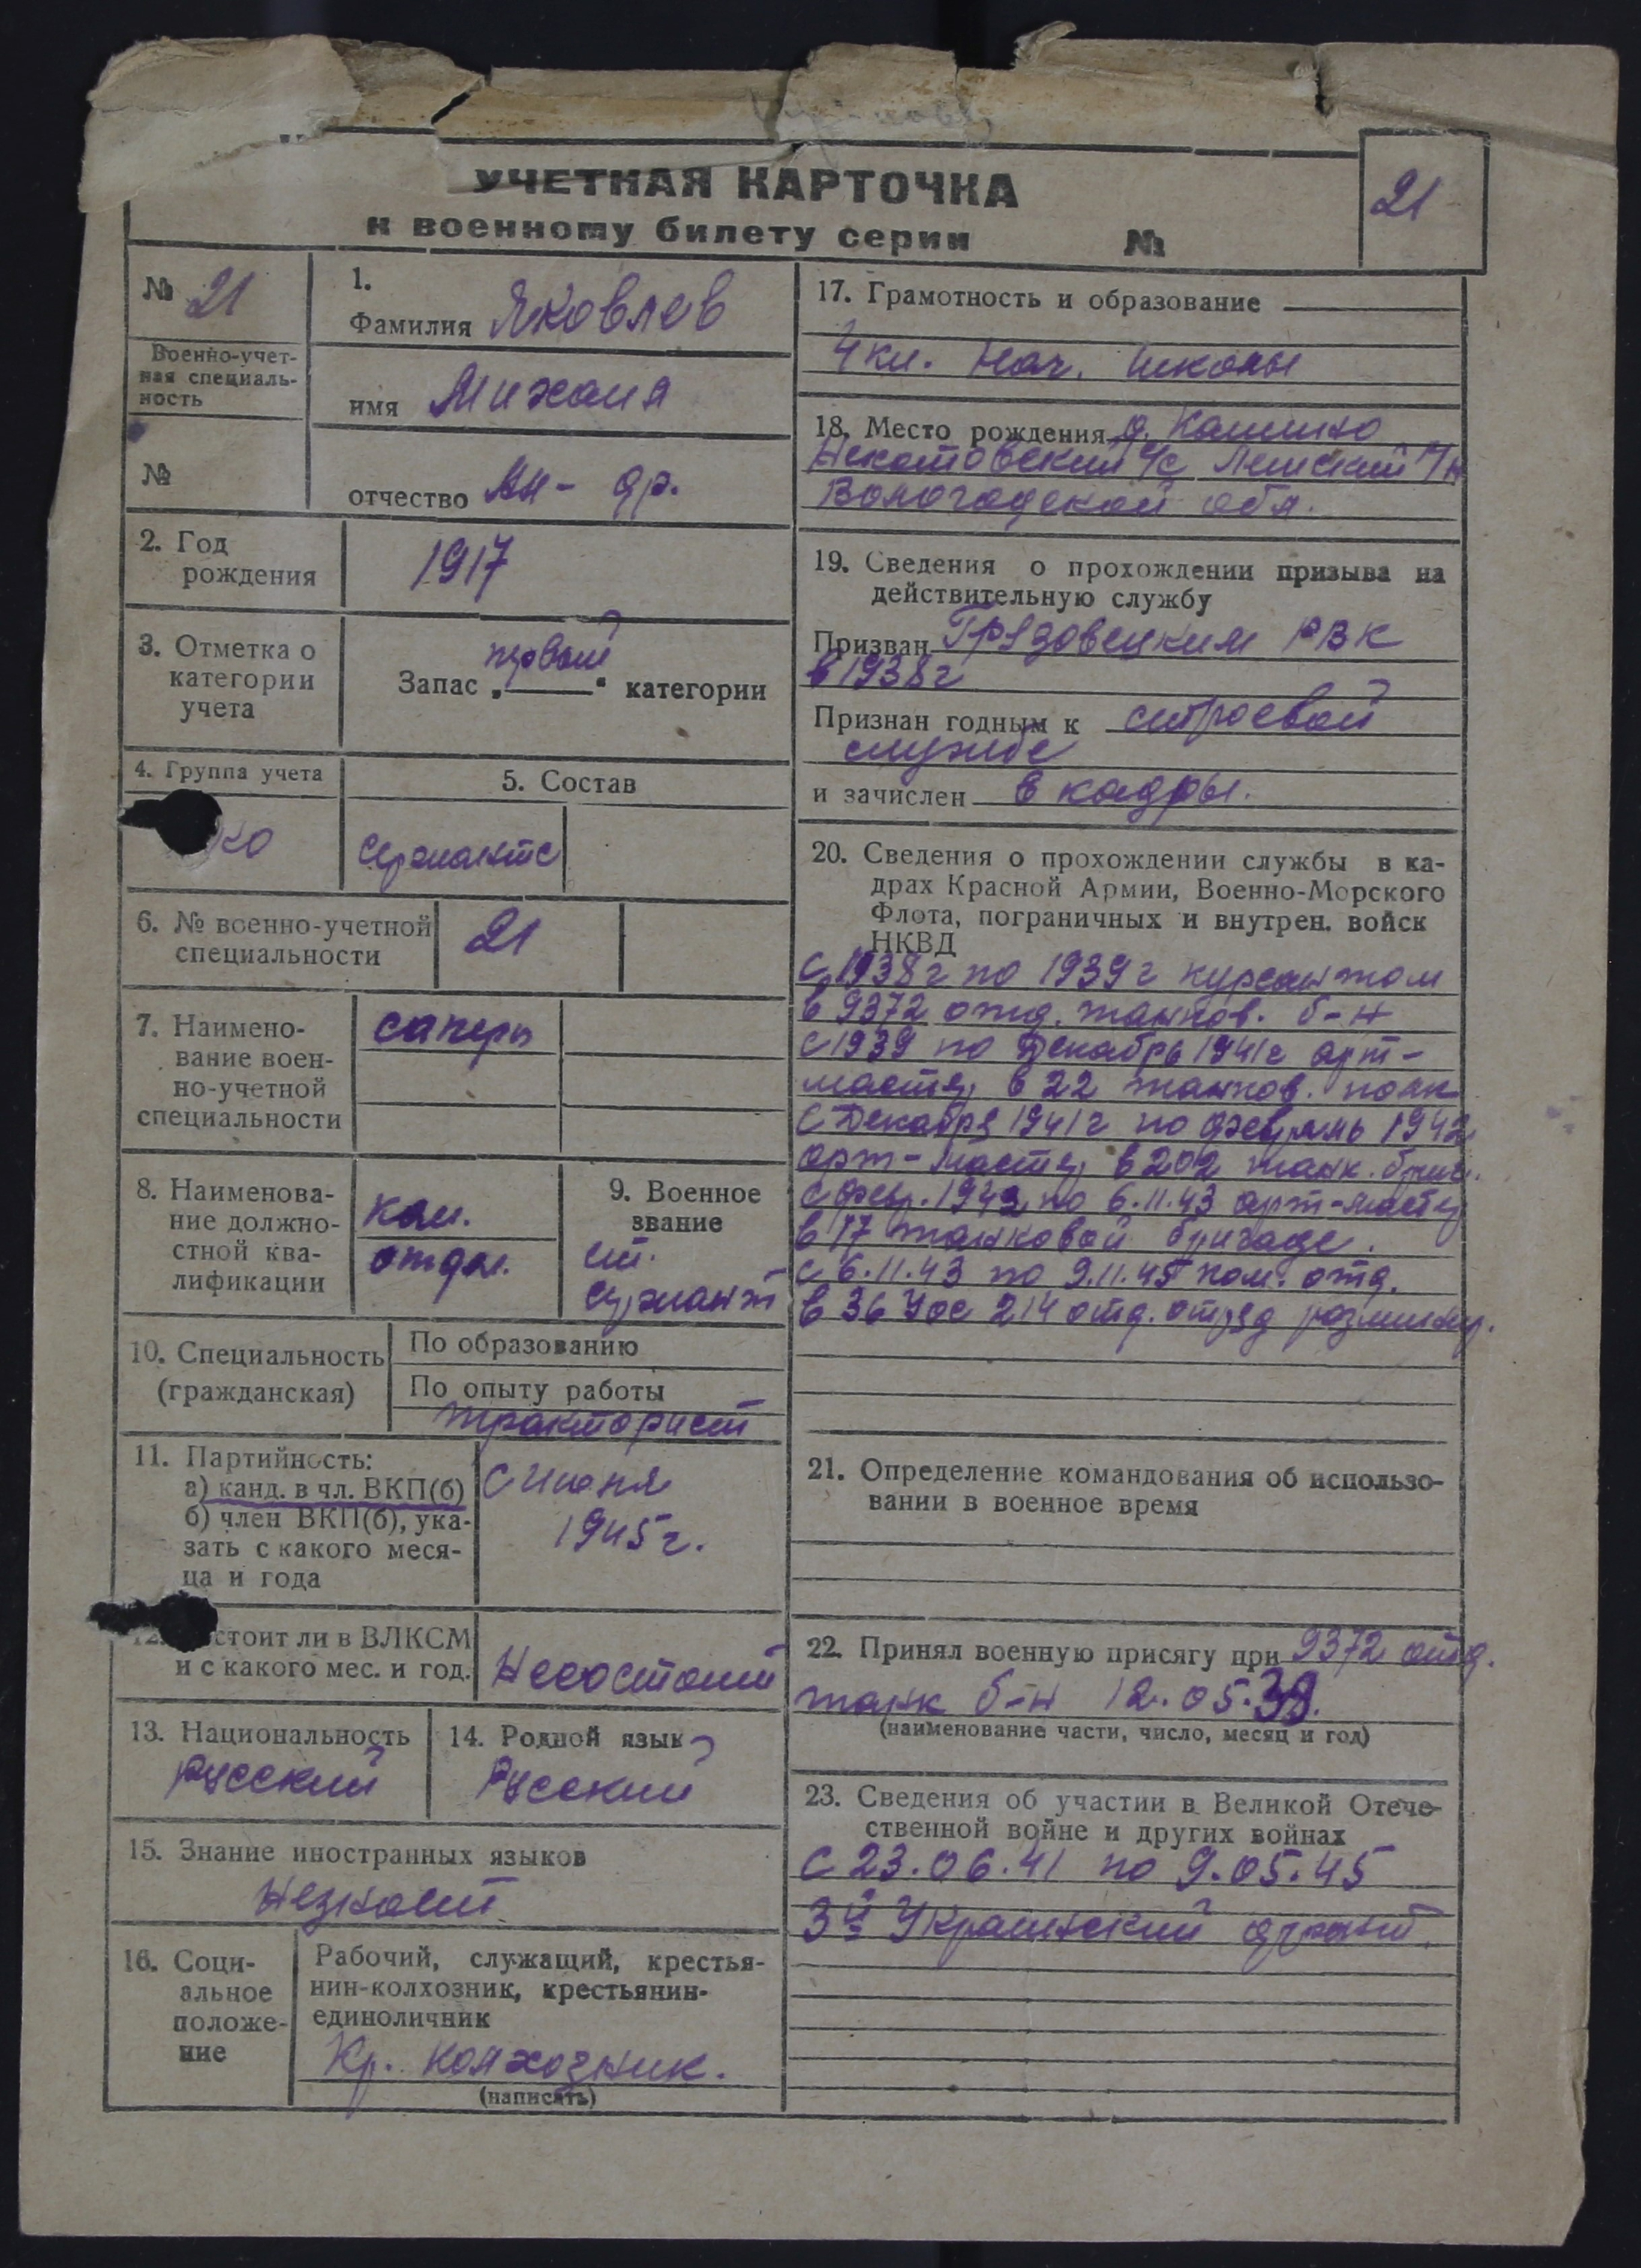 УЧЕТНАЯ КАРТОЧКА
к военному билету серии №
21
№ 21
Военно-учет-
ная специаль-
ность
№
1.
Фамилия Яковлев
имя Михаил
отчество Ан-др.
2. Год
рождения
1917
3. Отметка о
категории
учета
первой
Запас „ “ категории
4. Группа учета
5. Состав
сержантс
6. № военно-учетной
специальности
21
7. Наимено-
вание воен-
но-учетной
специальности
саперы
8. Наименова-
ние должно-
стной ква-
лификации
ком.
отдел.
9. Военное
звание
ст.
сержант
10. Специальность
(гражданская)
По образованию
По опыту работы
тракторист
11. Партийность:
а) канд. в чл. ВКП(б)
б) член ВКП(б), ука-
зать с какого меся-
ца и года
С Июня
1945 г.
стоит ли в ВЛКСМ
и с какого мес. и год.
Несостоит
13. Национальность
Русский
14. Родной язык
Русский
15. Знание иностранных языков
Незнает
16. Соци-
альное
положе-
ние
Рабочий, служащий, крестья-
нин-колхозник, крестьянин-
единоличник
Кр. колхозник.
(написать)
17. Грамотность и образование
4 кл. нач. школы
18. Место рождения д. Кашино
с/с р/н
Вологодской обл.
19. Сведения о прохождении призыва на
действительную службу
Призван Грязовецким РВК
в 1938 г
Признан годным к строевой
службе
и зачислен в кадры.
20. Сведения о прохождении службы в ка-
драх Красной Армии, Военно-Морского
Флота, пограничных и внутрен. войск
НКВД
С 1938 г по 1939 г курсантом
в 9372 отд. танков. б-н
С 1939 по Декабрь 1941 г арт-
мастер в 22 танков. полк
С Декабря 1941 г по февраль 1942
арт-мастер в 202 танк. бриг.
С февр. 1942 по 6.11.43 арт-мастер
в 17 танковой бригаде.
С 6.11.43 по 9.11.45 пом. отд.
в 36 214 отд. отряд разминир.
21. Определение командования об использо-
вании в военное время
22. Принял военную присягу при 9372 отд.
танк б-н 12.05.39.
(наименование части, число, месяц и год)
23. Сведения об участии в Великой Отече-
ственной войне и других войнах
С 23.06.41 по 9.05.45
3й Украинский фронт.